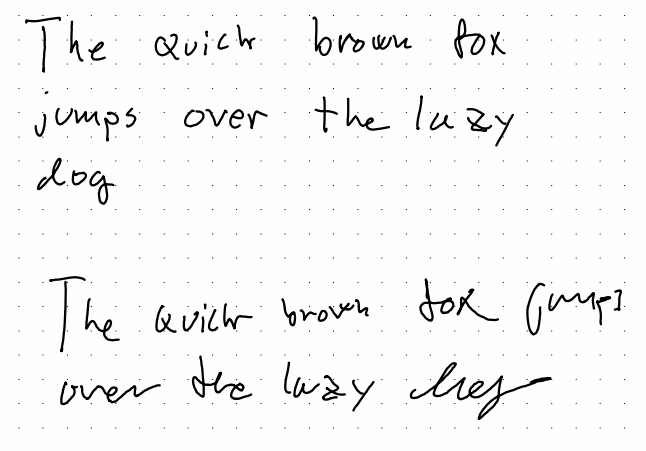 The quick brown fox
jumps over the lazy
dog
The quick brown fox jumps
over the lazy